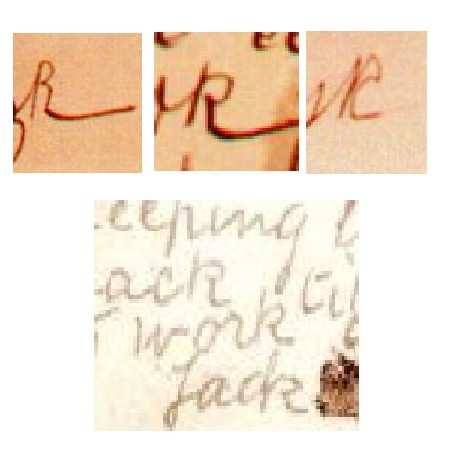 k k k
eeping
ack
work
Jack